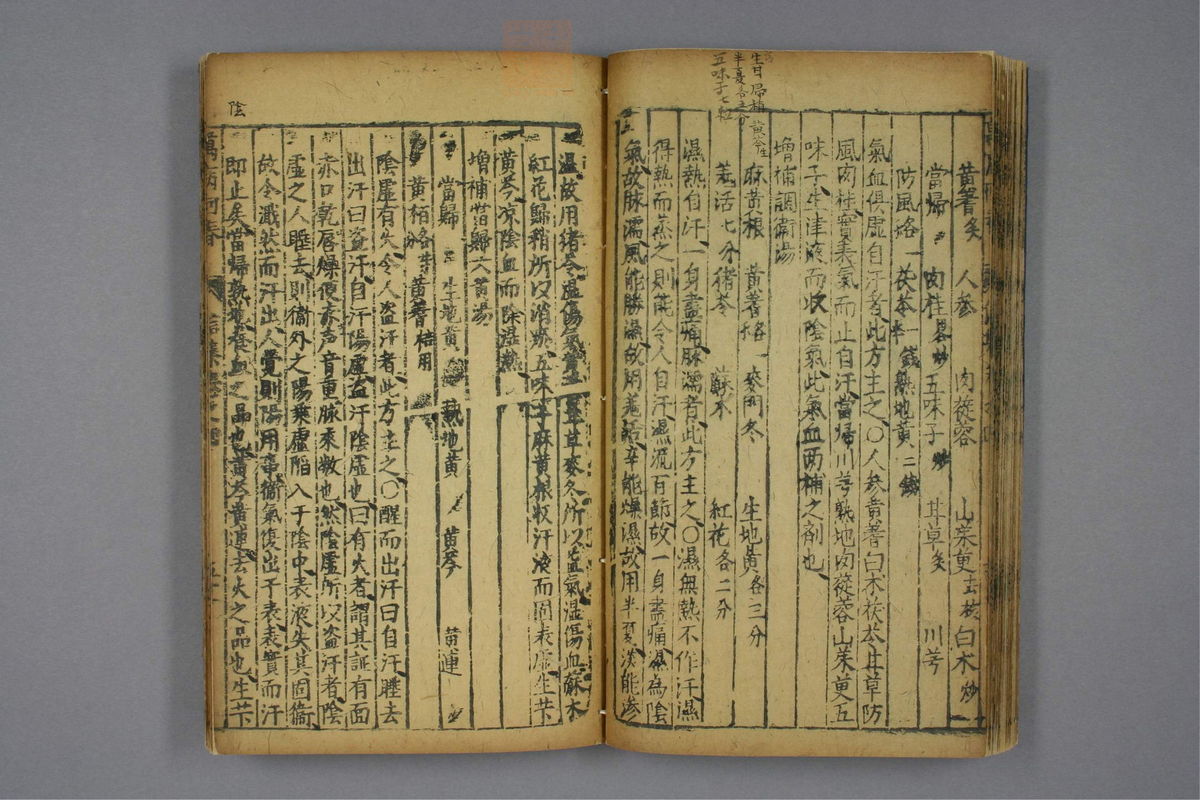 生甘 歸梢 黃芩生
半夏各五分
五味子七粒
黄蓍炙 人參 肉蓯蓉 山茱萸去核 白术炒
當歸 肉桂 五味子炒 甘草炙 川芎
防風 茯苓 一錢 熟地黄二錢
氣血俱虛自汗者此方主之〇人參黄蓍白术茯苓甘草防
風肉桂實表氣而止自汗當歸川芎熟地肉蓯蓉山茱萸五
味子生津液而收陰氣此氣血兩補之劑也
增補調衛湯
麻黄根 黄蓍各一錢 麥門冬 生地黄各三分
羌活七分 猪苓 蘇木 紅花各二分
濕熱自汗一身盡痛脉濡者此方主之〇濕無熱不作汗濕
得熱而蒸之則能令人自汗濕流百節故一身盡痛濕為陰
氣故脉濡風能勝濕故用羌活辛能燥濕故用半夏淡能滲
濕故用猪苓濕傷氣 甘草麥冬所以益氣濕傷血蘇木
紅花歸稍所以消瘀五味子麻黄根收汗液而固表虛生芐
黄芩凉陰血而除濕熱
增補當歸六黄湯
當歸 生地黄 熟地黄 黄芩 黄連
黄栢各等分 黄蓍倍用
陰虛有火令人盗汗者此方主之〇醒而出汗曰自汗睡去
出汗曰盗汗自汗陽虛盗汗陰虛也曰有火者謂其証有面
赤口乾唇燥便赤声音重脉來數也然陰虛所以盗汗者陰
虛之人睡去則衞外之陽乘虛陷入于陰中表液失其固衞
故令濈然而汗出人覺則陽用事衞氣復出于表表實而汗
即止矣當歸熟地養血之品也黄芩黄連去火之品也生芐
陰
萬病回春